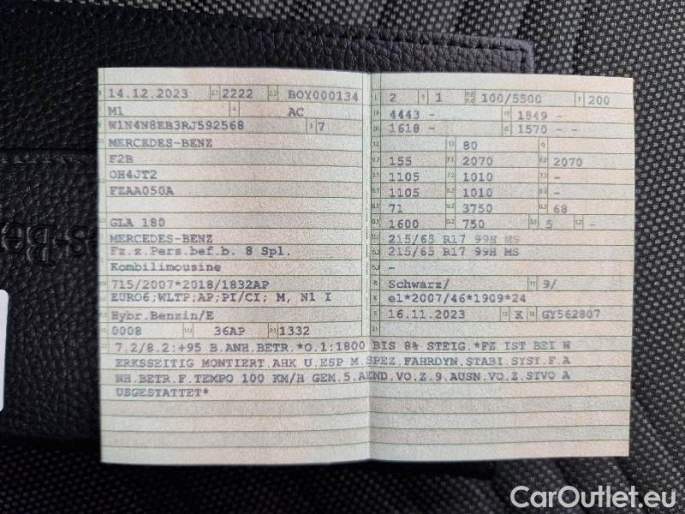 14.12.2023 2222 BOY000134
M1 AC
W1N4N8EB3RJ592568 7
MERCEDES-BENZ
F2B
OH4JT2
FZAA050A
GLA 180
MERCEDES-BENZ
Fz.z.Pers.bef.b. 8 Spl.
Kombilimousine
715/2007*2018/1832AP
EURO6;WLTP;AP;PI/CI; M, N1 I
Hybr.Benzin/E
0008 36AP 1332
2 1 100/5500 200
4443 - 1849 -
1618 - 1570 -
80
155 2070 2070
1105 1010 -
1105 1010 -
71 3750 68
1600 750 5 -
215/65 R17 99H MS
215/65 R17 99H MS
-
Schwarz/ 9/
e1*2007/46*1909*24
16.11.2023 K GY562807
7.2/8.2:+95 B.ANH.BETR.*O.1:1800 BIS 8% STEIG.*FZ IST BEI W
ERKSSEITIG MONTIERT.AHK U.ESP M.SPEZ.FAHRDYN.STABI.SYST.F.A
NH.BETR.F.TEMPO 100 KM/H GEM.5.AEND.VO.Z.9.AUSN.VO.Z.STVO A
USGESTATTET*
CarOutlet.eu